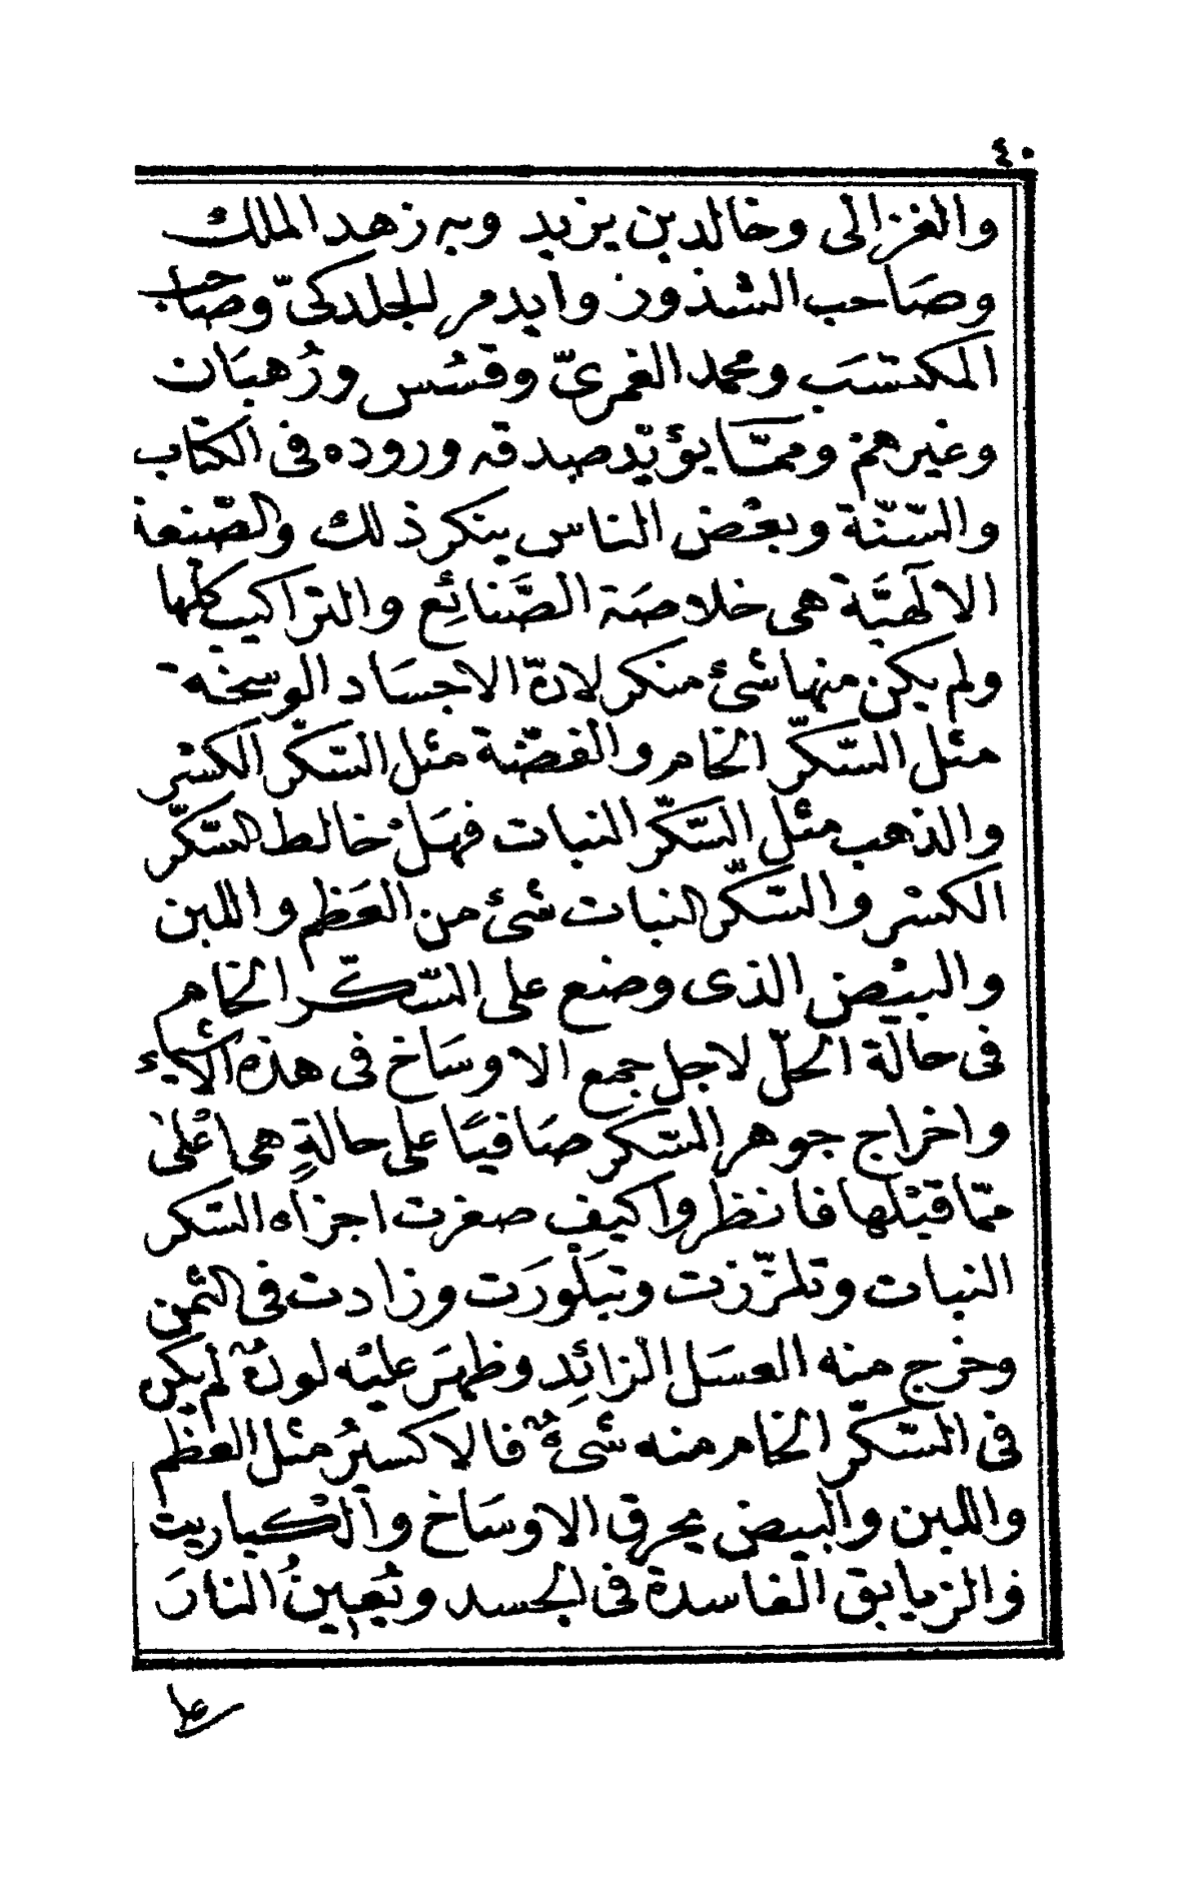 ٤٠
والغزالى وخالد بن يزيد وبه زهد الملك
وصَاحب الشذور وايدمر الجلدكىّ وصَاحب
المكتسَب ومحمد الغمرىّ وقسُس ورُهبَان
وغيرهم وممّا يؤيّد صدقه وروده فى الكتاب
والسّنّة وبعْض الناس ينكر ذلك والصّنعة
الالٓهيَّة هى خلاصَة الصَّنائِع والتراكيب كلها
ولم يكن منها شئ منكر لانّ الاجسَاد الوسخة
مثل السّكّر الخام والفضّة مثل السّكّر الكسْر
والذهب مثل السّكّر النبات فهَلْ خالط السّكّر
الكسْر والسّكّر النبات شئ من العَظم واللبن
والبيْض الذى وضع على السّكّر الخام
فى حالة الحلّ لاجل جمع الاوسَاخ فى هذه الاشياء
واخراج جوهر السّكر صَافيًا على حالةٍ هى اعْلىٰ
ممّا قبْلها فانظروا كيف صغرت اجزاه السّكر
النبات وتلزّزت وتبَلْورَت وزادت فى الثمن
وخرج منه العسَل الزائِد وظهَر عليْه لونٌ لم يكن
فى السّكّر الخام منه شئٌ فالاكسيْرُ مثل العظم
واللبن والبيض يحرق الاوسَاخ والكباريت
والزيابق الفاسدة فى الجسد وتُعِينُ النارَ